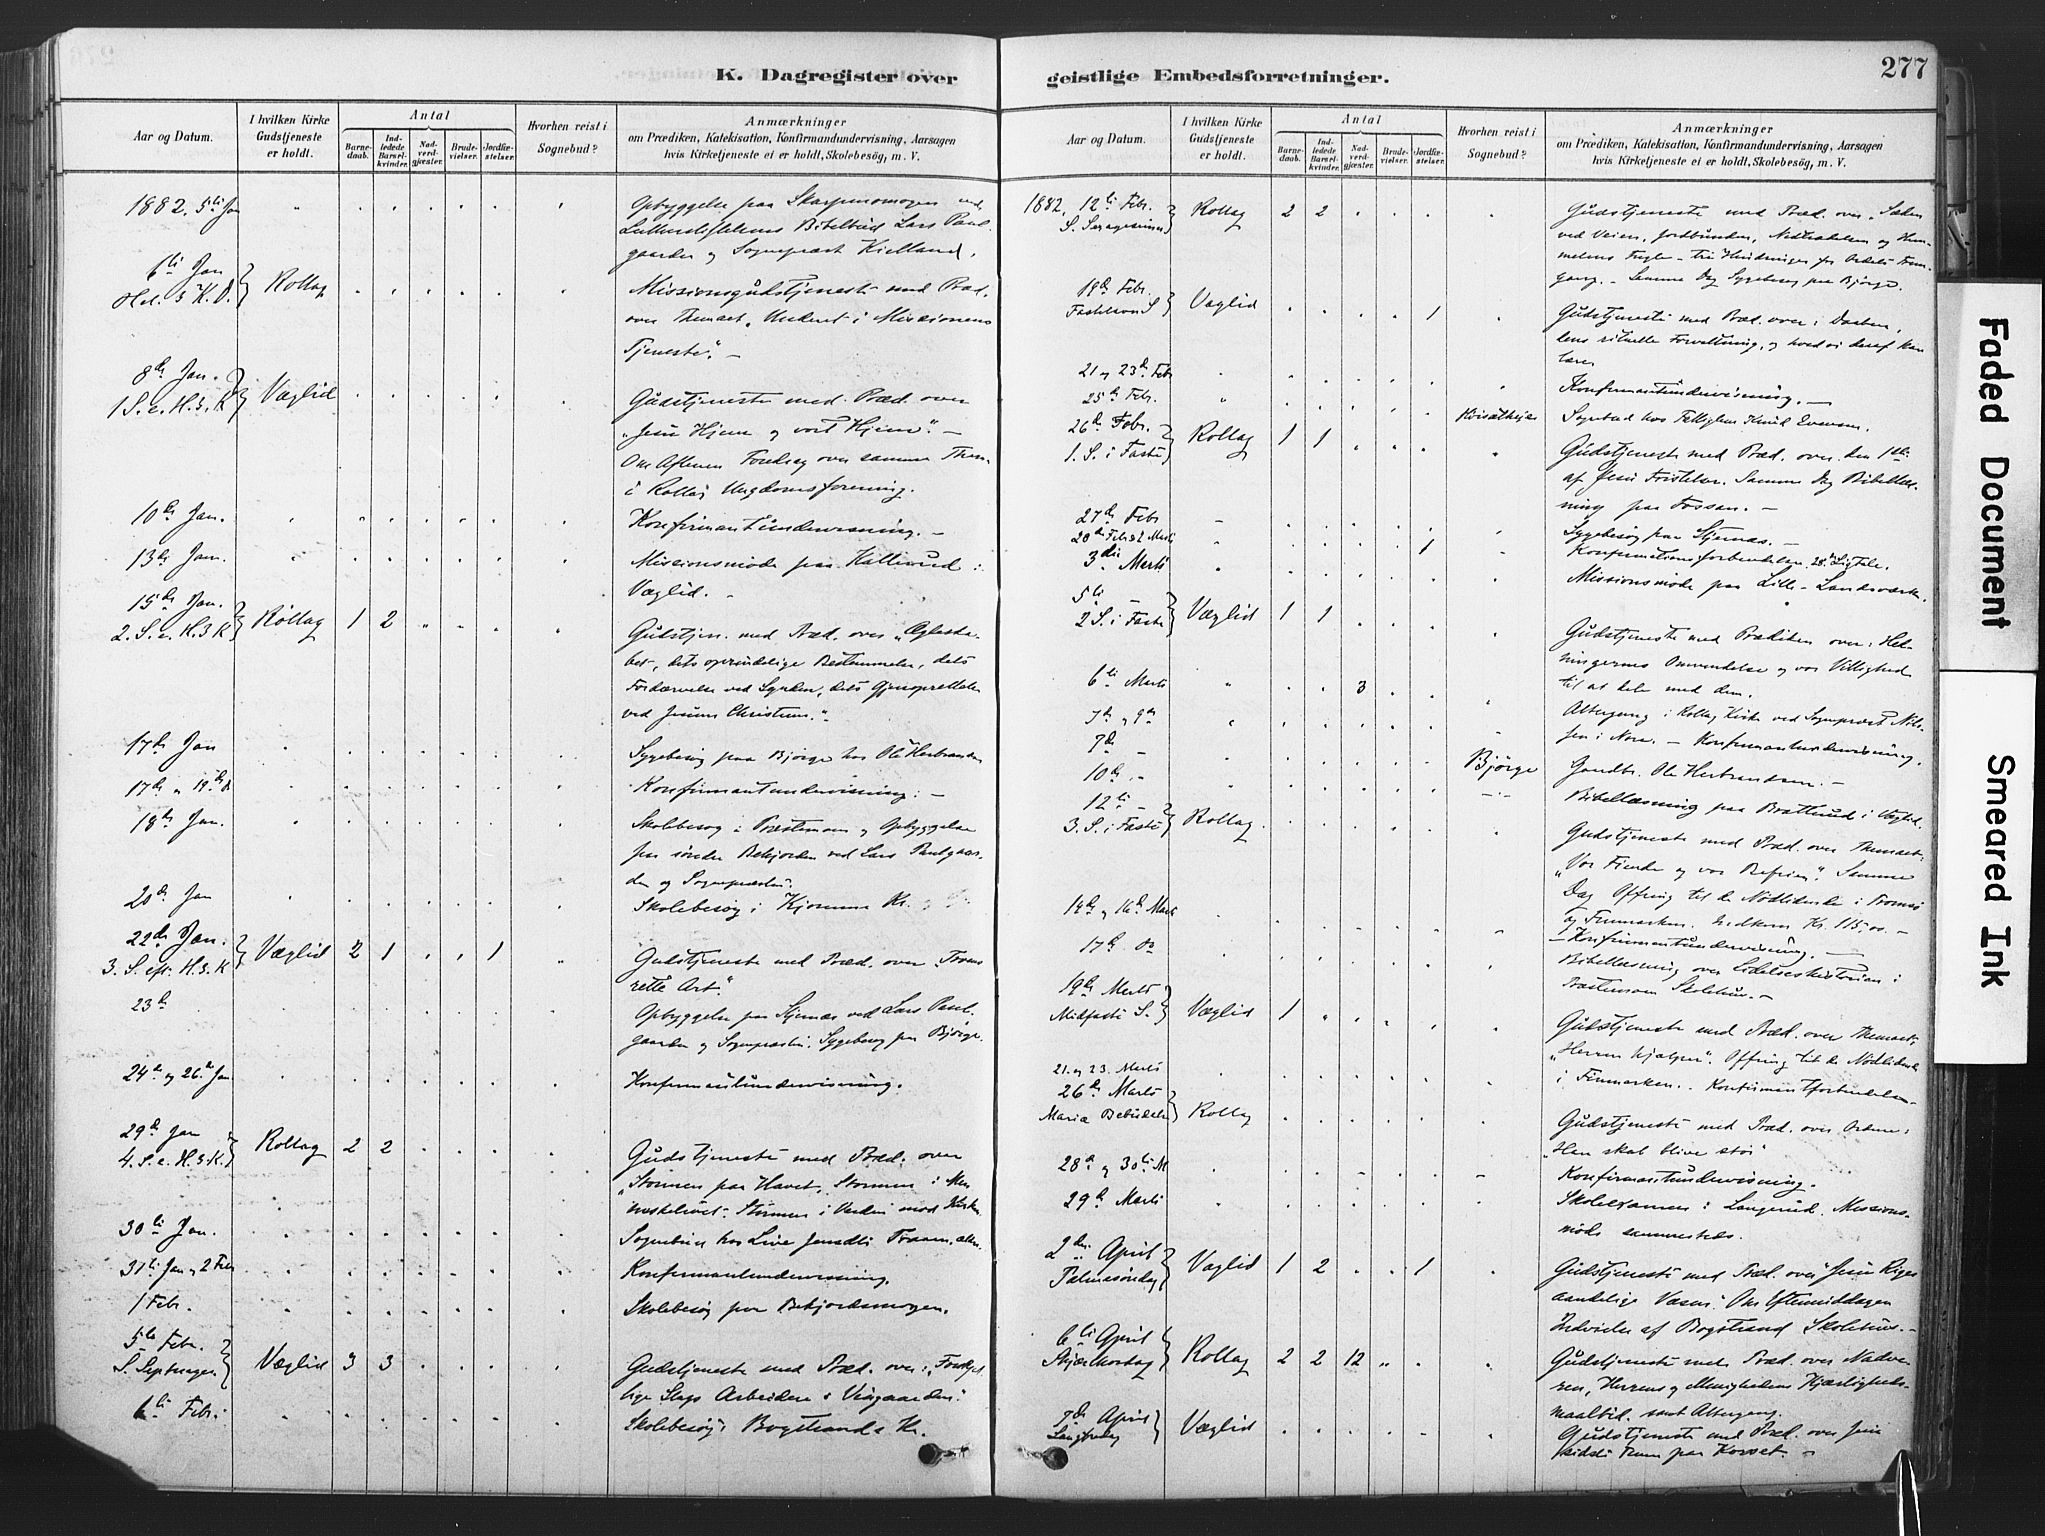 K. Dagregister over
Aar og Datum.
I hvilken Kirke Gudstjeneste er holdt.
Antal
Barnedaab.
Indledede Barselkvinder.
Nadverdgjæster.
Brudevielser.
Jordfæstelser.
Hvorhen reist i Sognebud?
Anmærkninger
om Prædiken, Katekisation, Konfirmandundervisning, Aarsagen
hvis Kirketjeneste ei er holdt, Skolebesøg, m. V.
1882, 5te Jan
Opbyggelse paa
Bibelbud Lars Paul-
gaarden og Sognepræst Kielland.
6te Jan
Hel. 3 K. D. Rollag
Missionsgudstjeneste med Præd.
over Themaet i Missionens
Tjeneste". —
8de Jan.
1 S. e. H. 3. K Væglid
Gudstjeneste med Præd. over
"Jesu Hjem og vort Hjem". —
Om Aftenen Foredrag over samme Thema
i Rollag Ungdomsforening.
10de Jan.
Konfirmantundervisning. —
13de Jan.
Missionsmöde paa Kallerud i
Væglid. —
15de Jan.
2. S. e. H. 3 K Rollag 1 2
Gudstjen. med Præd. over "Ægteska-
bet, dets oprindelige Bestemmelse, dets
Fordærvelse ved Synden, dets Gjenoprettelse
ved Jesum Christum."
17de Jan
Sygebesøg paa Bjørge hos Ole Herbrandsen
17de og 19de
Konfirmantundervisning. —
18de Jan.
Skolebesøg i og Opbyggelse
paa søndre ved Lars Paulgaar-
den og Sognepræsten.
20de Jan
Skolebesøg i Kr.
22de Jan.
3. S. eft. H. 3. K Væglid 2 1 1
Gudstjeneste med Præd. over "Troens
rette Art".
23de
Opbyggelse paa Stjernes ved Lars Paul-
gaarden og Sognepræsten. Sygebesøg paa Bjørge.
24de og 26de Jan
Konfirmantundervisning.
29de Jan
4. S. e. H. 3. K. Rollag 2 2
Gudstjeneste med Præd. over
"Stormen paa Havet, Stormen i Men-
neskelivet, Stormen i Verden mod Kirken
30te Jan.
Sognebud hos Live
31te Jan og 2 Febr
Konfirmantundervisning.
1 Febr.
Skolebesøg paa
5te Febr.
S. Septuages. Væglid 3 3
Gudstjeneste med Præd. over:
lige Slags Arbeidere i Viingaarden".
6te Febr.
Skolebesøg i Bogstrands Kr.
geistlige Embedsforretninger.
277
Aar og Datum.
I hvilken Kirke Gudstjeneste er holdt.
Antal
Barnedaab.
Indledede Barselkvinder.
Nadverdgjæster.
Brudevielser.
Jordfæstelser.
Hvorhen reist i Sognebud?
Anmærkninger
om Prædiken, Katekisation, Konfirmandundervisning, Aarsagen
hvis Kirketjeneste ei er holdt, Skolebesøg, m. V.
1882, 12te Febr.
S. Sexagesima Rollag 2 2
Gudstjeneste med Præd. over "Sæden
ved Veien, Jordbunden, Nedtrædelsen og Him-
melens Fugle — tre Hindringer for Ordets Frem-
gang. — Samme Dag Sygebesøg paa Bjørge.
19de Febr.
Fastelavn S Væglid 1
Gudstjeneste med Præd. over: Daaben,
dens rituelle Forvaltning, og hvad vi deraf kan
lære.
21 og 23de Febr
Konfirmantundervisning. —
25de Febr.
Sognebud hos Knud
26de Febr.
1. S. i Faste Rollag 1 1
Gudstjeneste med Præd. over den 1ste
af Jesu Fristelser. Samme Dag Bibellæs-
ning paa Fossan. —
27de Febr
Sygebesøg paa Stjernes. —
28de Febr & 2 Marts 1
Konfirmationsforberedelse, 28de Ligtale.
3die Marts
Missionsmøde paa Lille-Landsværk.
5te —
2 S. i Faste Væglid 1 1
Gudstjeneste med Prædiken over: Hed-
ningernes Omvendelse og vor Villighed
til at dele med dem.
6te Marts 3
Altergang i Rollag Kirke ved Sognepræst Nils-
sen i Nore. —
7de og 9de
Konfirmantundervisning.
9de — Bjørge
Gaardbr. Ole Herbrandsen. —
10de —
Bibellæsning paa Brattrud i Væglid.
12te —
3. S. i Faste Rollag.
Gudstjeneste med Præd. over Themaet:
"Vor Fiende og vor Befrier". Samme
Dag Offring til de Nødlidende i Tromsø
og Finmarken. Indkom Kr. 115,00. —
14de og 16de Marts
Konfirmantundervisning. —
17de
Bibellæsning over Lidelseshistorien i
Skolehus. —
19de Marts
Midfaste S. Væglid 1
Gudstjeneste med Præd. over Themaet:
"Herren hjælper". Offring til de Nødlidende
i Finmarken.
21. og 23. Marts
Konfirmantforberedelse.
26de Marts
Maria Bebudelse Rollag
Gudstjeneste med Præd. over Ordene:
"Han skal blive stor"
28de og 30te M
Konfirmantundervisning.
29de Marts
Skoleexamen i Langerud. Missions-
møde sammesteds.
2den April
Palmesøndag Væglid 1 2 1
Gudstjeneste med Præd. over "Jesu Riges
aandelige Væsen". Om Eftermiddagen
Indvielse af Bogstrand Skolehus. —
6te April
Skjærthorsdag Rollag 2 2 12
Gudstjeneste med Præd. over Nadve-
ren, Herrens og Menighedens Kjærligheds-
maaltid, samt Altergang.
7de April
Langfredag Væglid
Gudstjeneste med Præd. over Jesu
sidste paa Korset. —
Faded Document
Smeared Ink